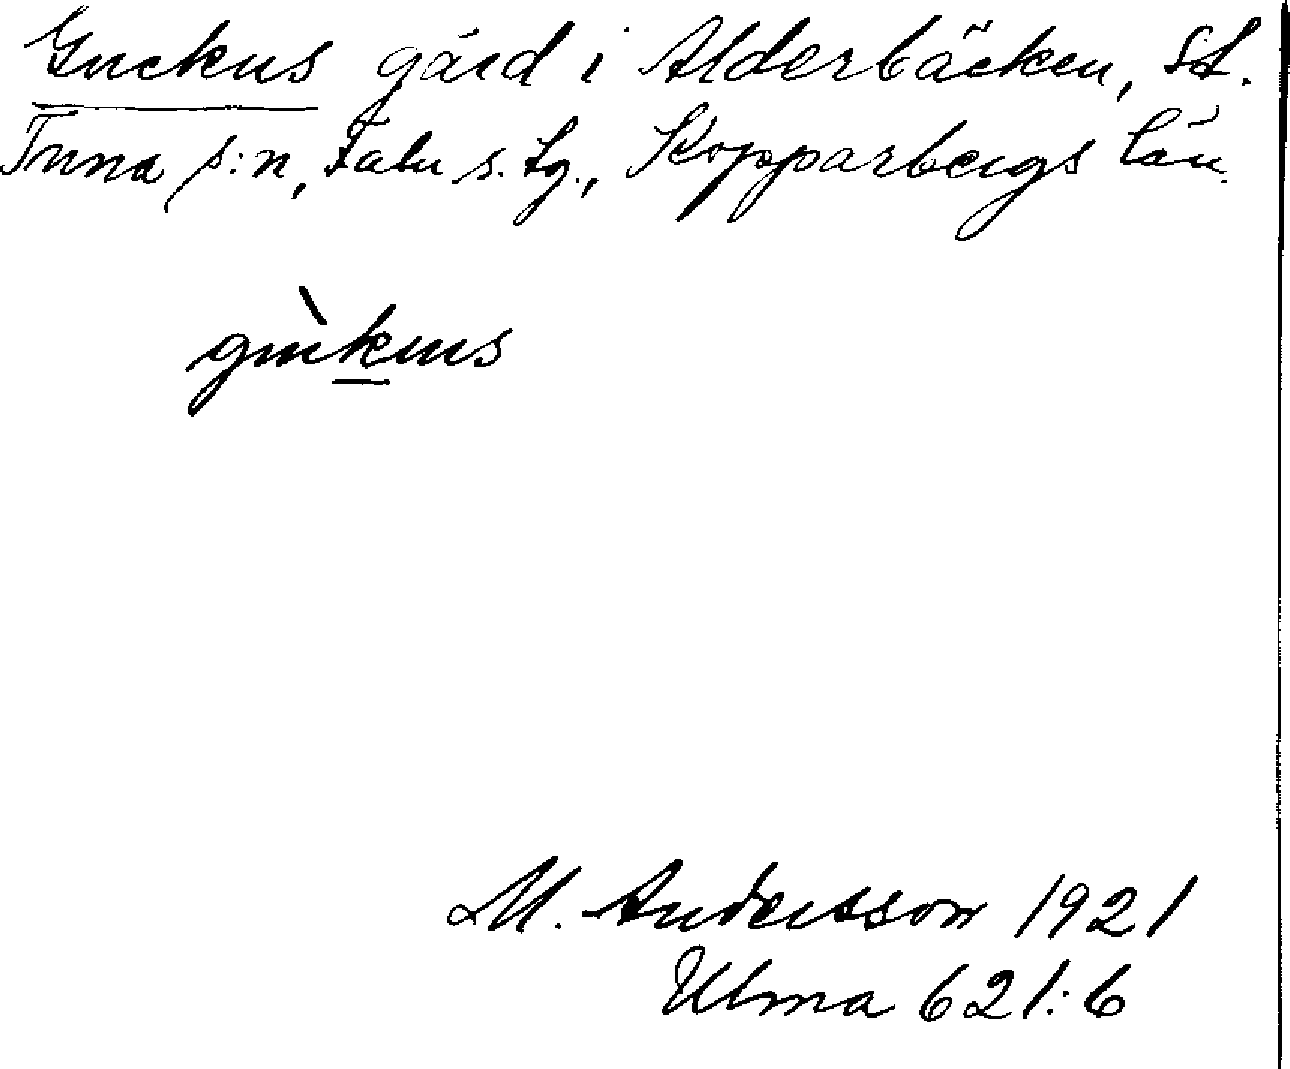 Guckus gård i Alderbäcken, St.
Tuna s:n, Falu s. tg., Kopparbergs län.
gùkus
M. Andersson 1921
Ulma 621:6